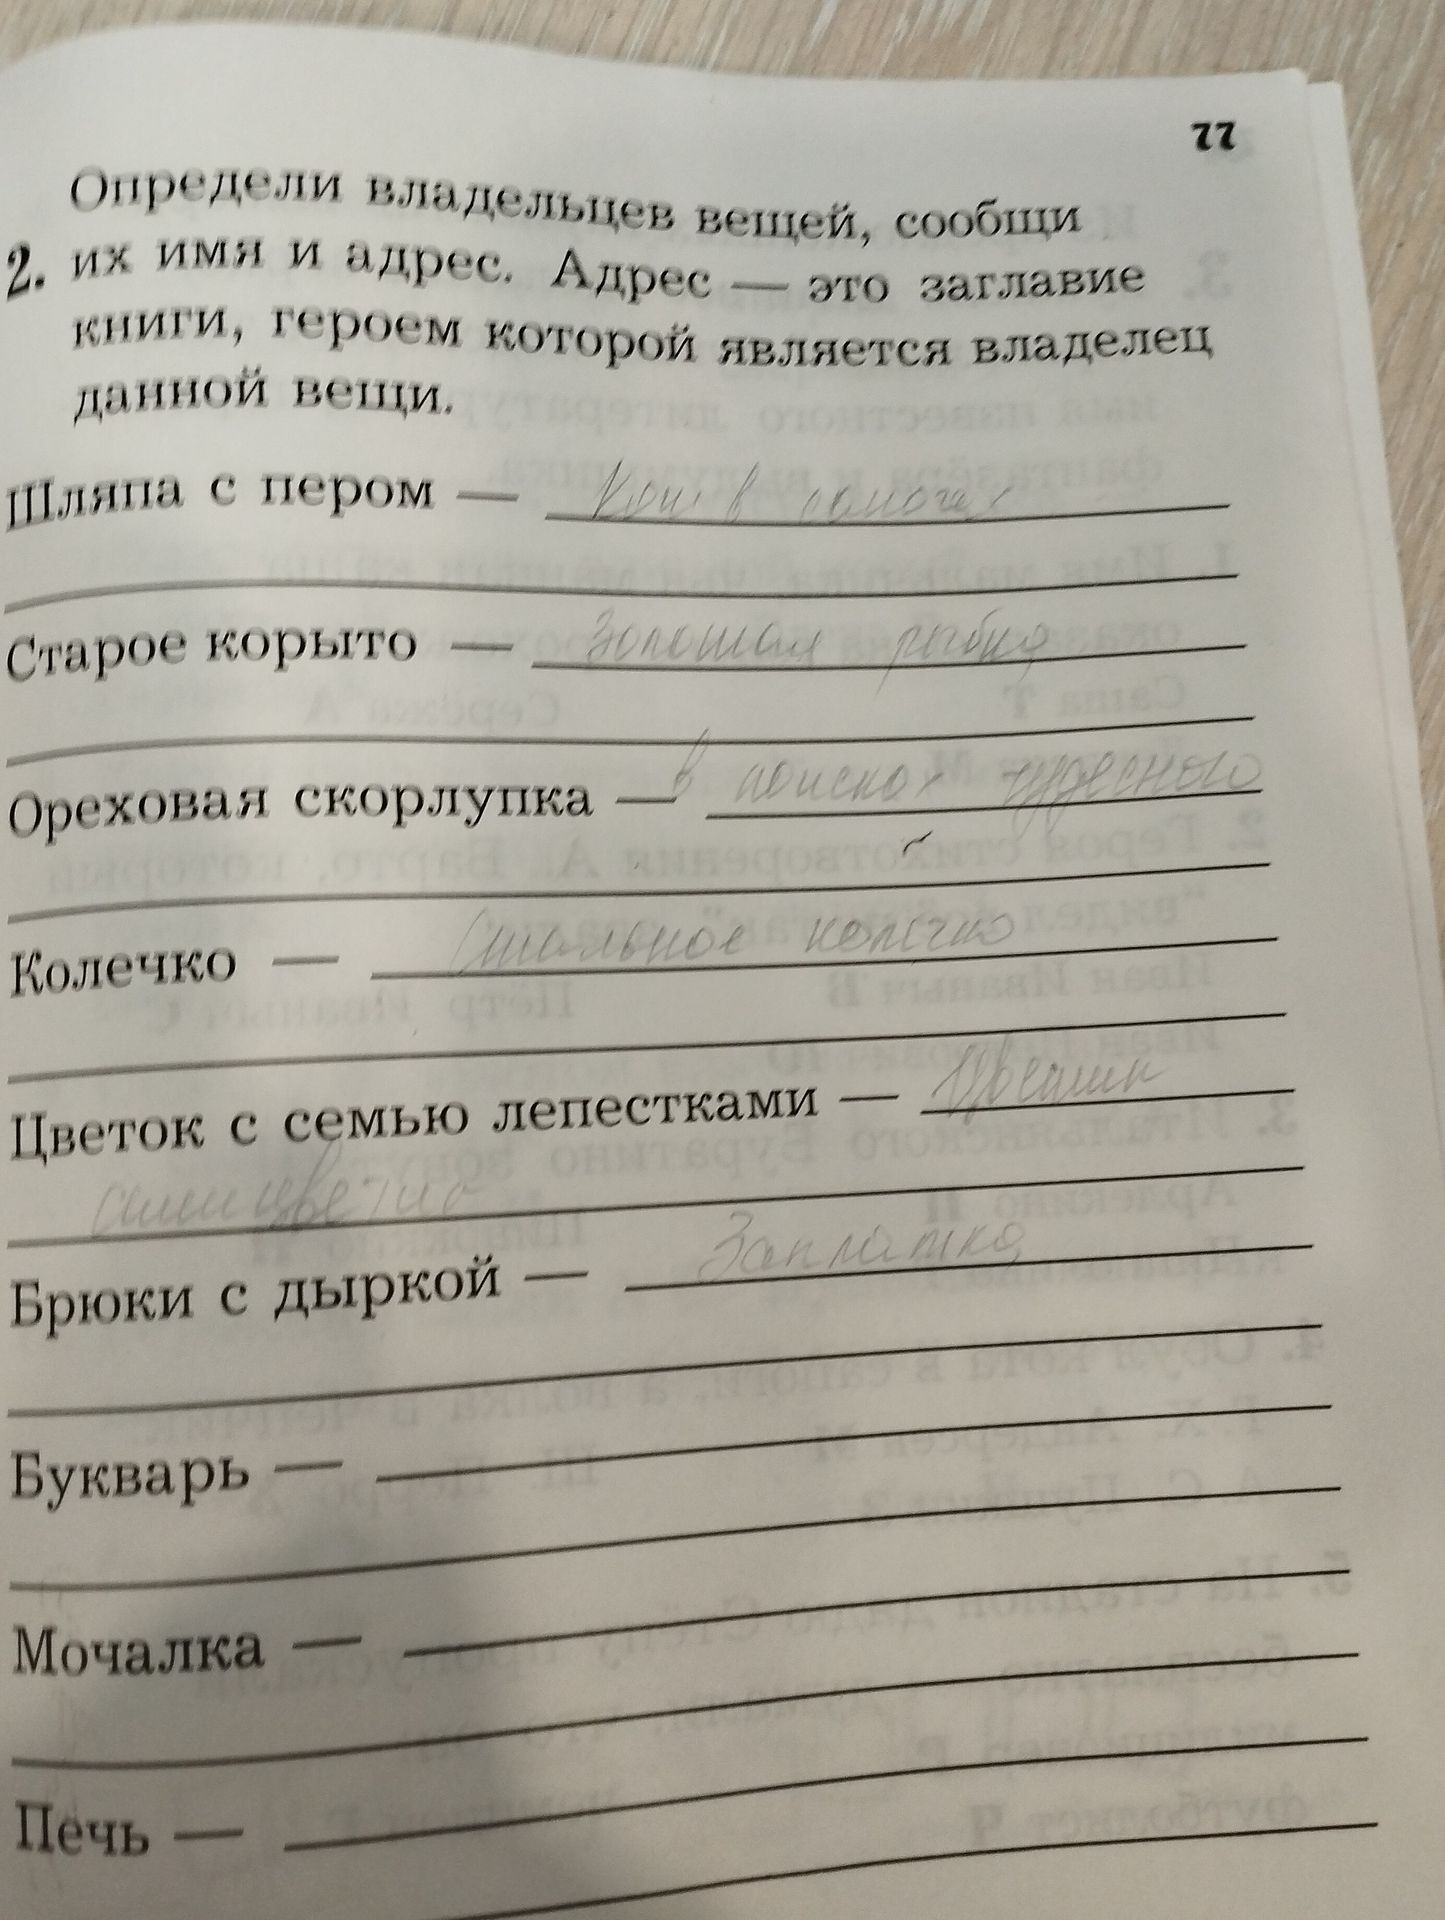 77
Определи владельцев вещей, сообщи
2. их имя и адрес. Адрес — это заглавие
книги, героем которой является владелец
данной вещи.
Шляпа с пером — Кот в сапогах
Старое корыто — Золотая рыбка
Ореховая скорлупка — в поисках чудесного
Колечко — Стальное колечко
Цветок с семью лепестками — Цветик
семицветик
Брюки с дыркой — Заплатка
Букварь —
Мочалка —
Печь —